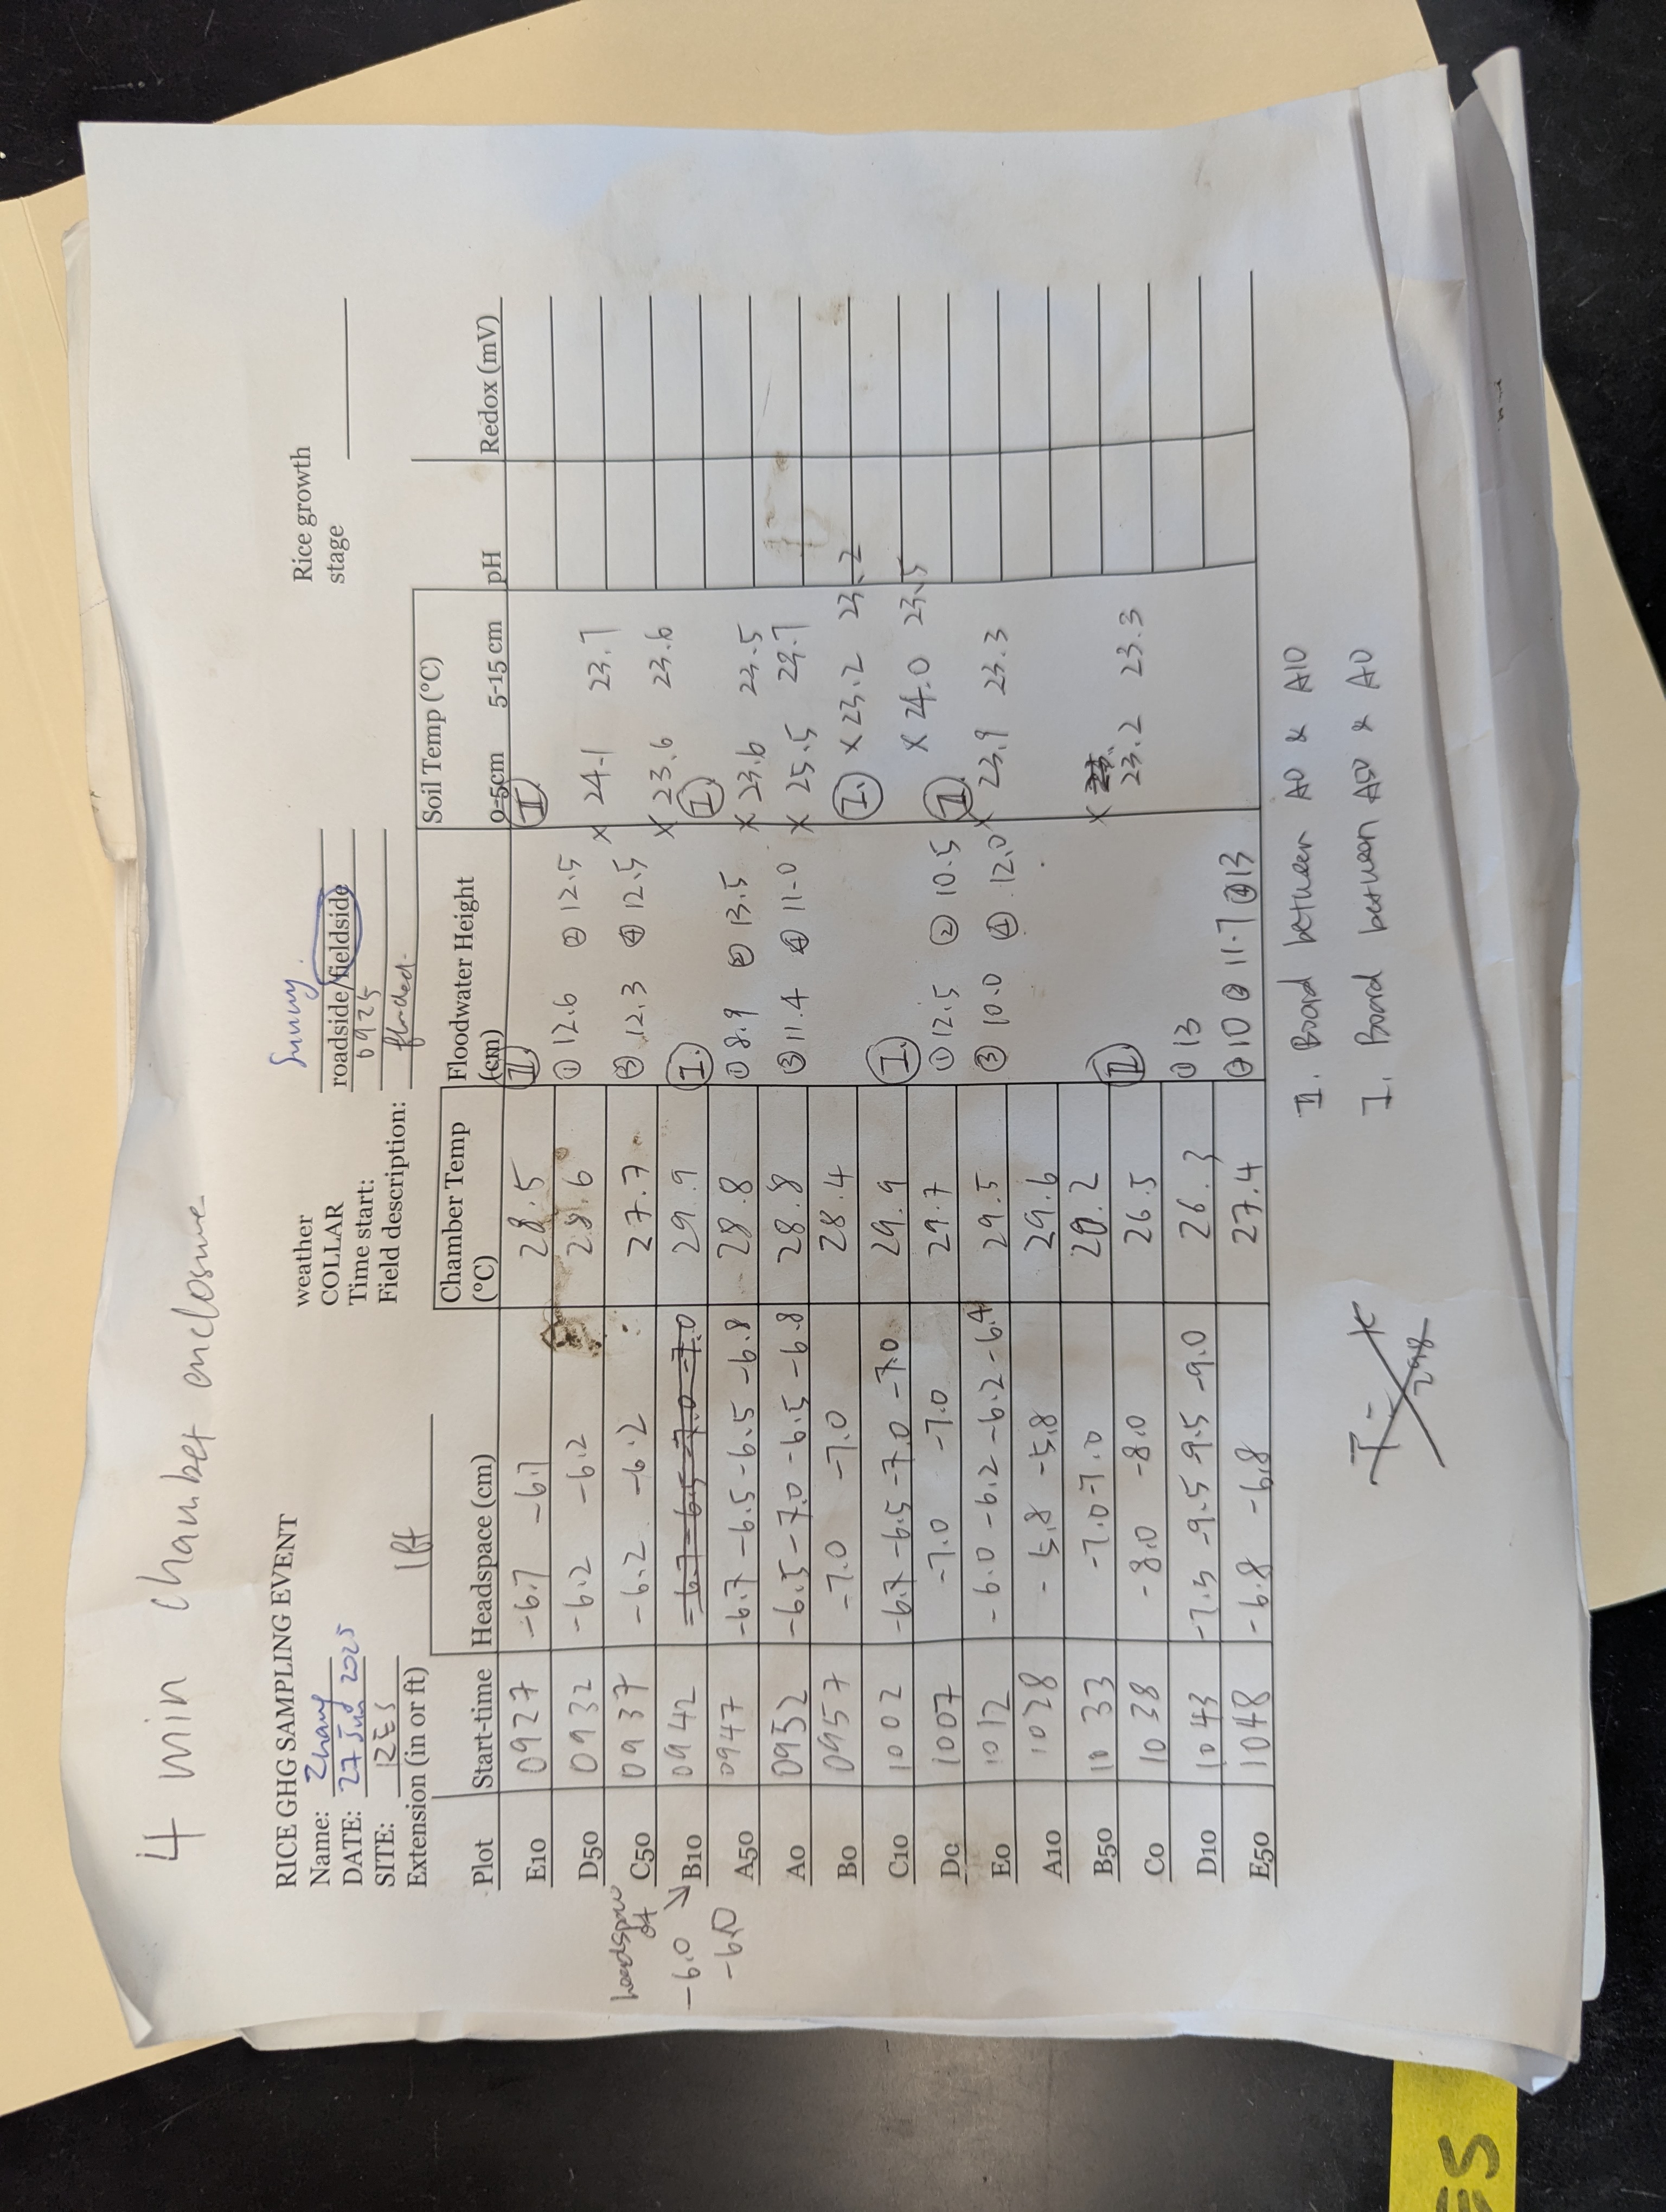 4 min chamber enclosure
RICE GHG SAMPLING EVENT
Name: Zhang
DATE: 27 Jun 2025
SITE: RES
Extension (in or ft) 1ft
weather Sunny.
COLLAR roadside/fieldside
Time start: 0925
Field description: flooded.
Rice growth
stage
Plot Start-time Headspace (cm) Chamber Temp (°C) Floodwater Height (cm) Soil Temp (°C) 0-5cm 5-15 cm pH Redox (mV)
E10 0927 -6.7 -6.7 28.5 II. I.
D50 0932 -6.2 -6.2 28.6 ① 12.6 ② 12.5 x 24.1 23.7
C50 0937 -6.2 -6.2 27.7 ③ 12.3 ④ 12.5 x 23.6 23.6
headspace
of
-6.0
-6.0
B10 0942 -6.7 -6.5 -7.0 -7.0 29.9 I. I.
A50 0947 -6.7 -6.5 -6.5 -6.8 28.8 ① 8.9 ② 13.5 x 23.6 23.5
A0 0952 -6.5 -7.0 -6.5 -6.8 28.8 ③ 11.4 ④ 11.0 x 25.5
B0 0957 -7.0 -7.0 28.4 I. x 23.2 23.2
C10 1002 -6.7 -6.5 -7.0 -7.0 29.9 I. x 24.0 23.5
D0 1007 -7.0 -7.0 29.7 ① 12.5 ② 10.5 II.
E0 1012 -6.0 -6.2 -6.2 -6.4 29.5 ③ 10.0 ④ 12.0 x 23.9 23.3
A10 1028 -5.8 -5.8 29.6
B50 1033 -7.0 -7.0 x 23.
C0 1038 -8.0 -8.0 26.5 II. 23.2 23.3
D10 1043 -9.5 -9.5 -9.0 26.3 ① 13
E50 1048 -6.8 -6.8 27.4 ② 10 ③ 11.7 ④ 13
II. Board between A0 & A10
I. Board between A50 & A0
T = K
298